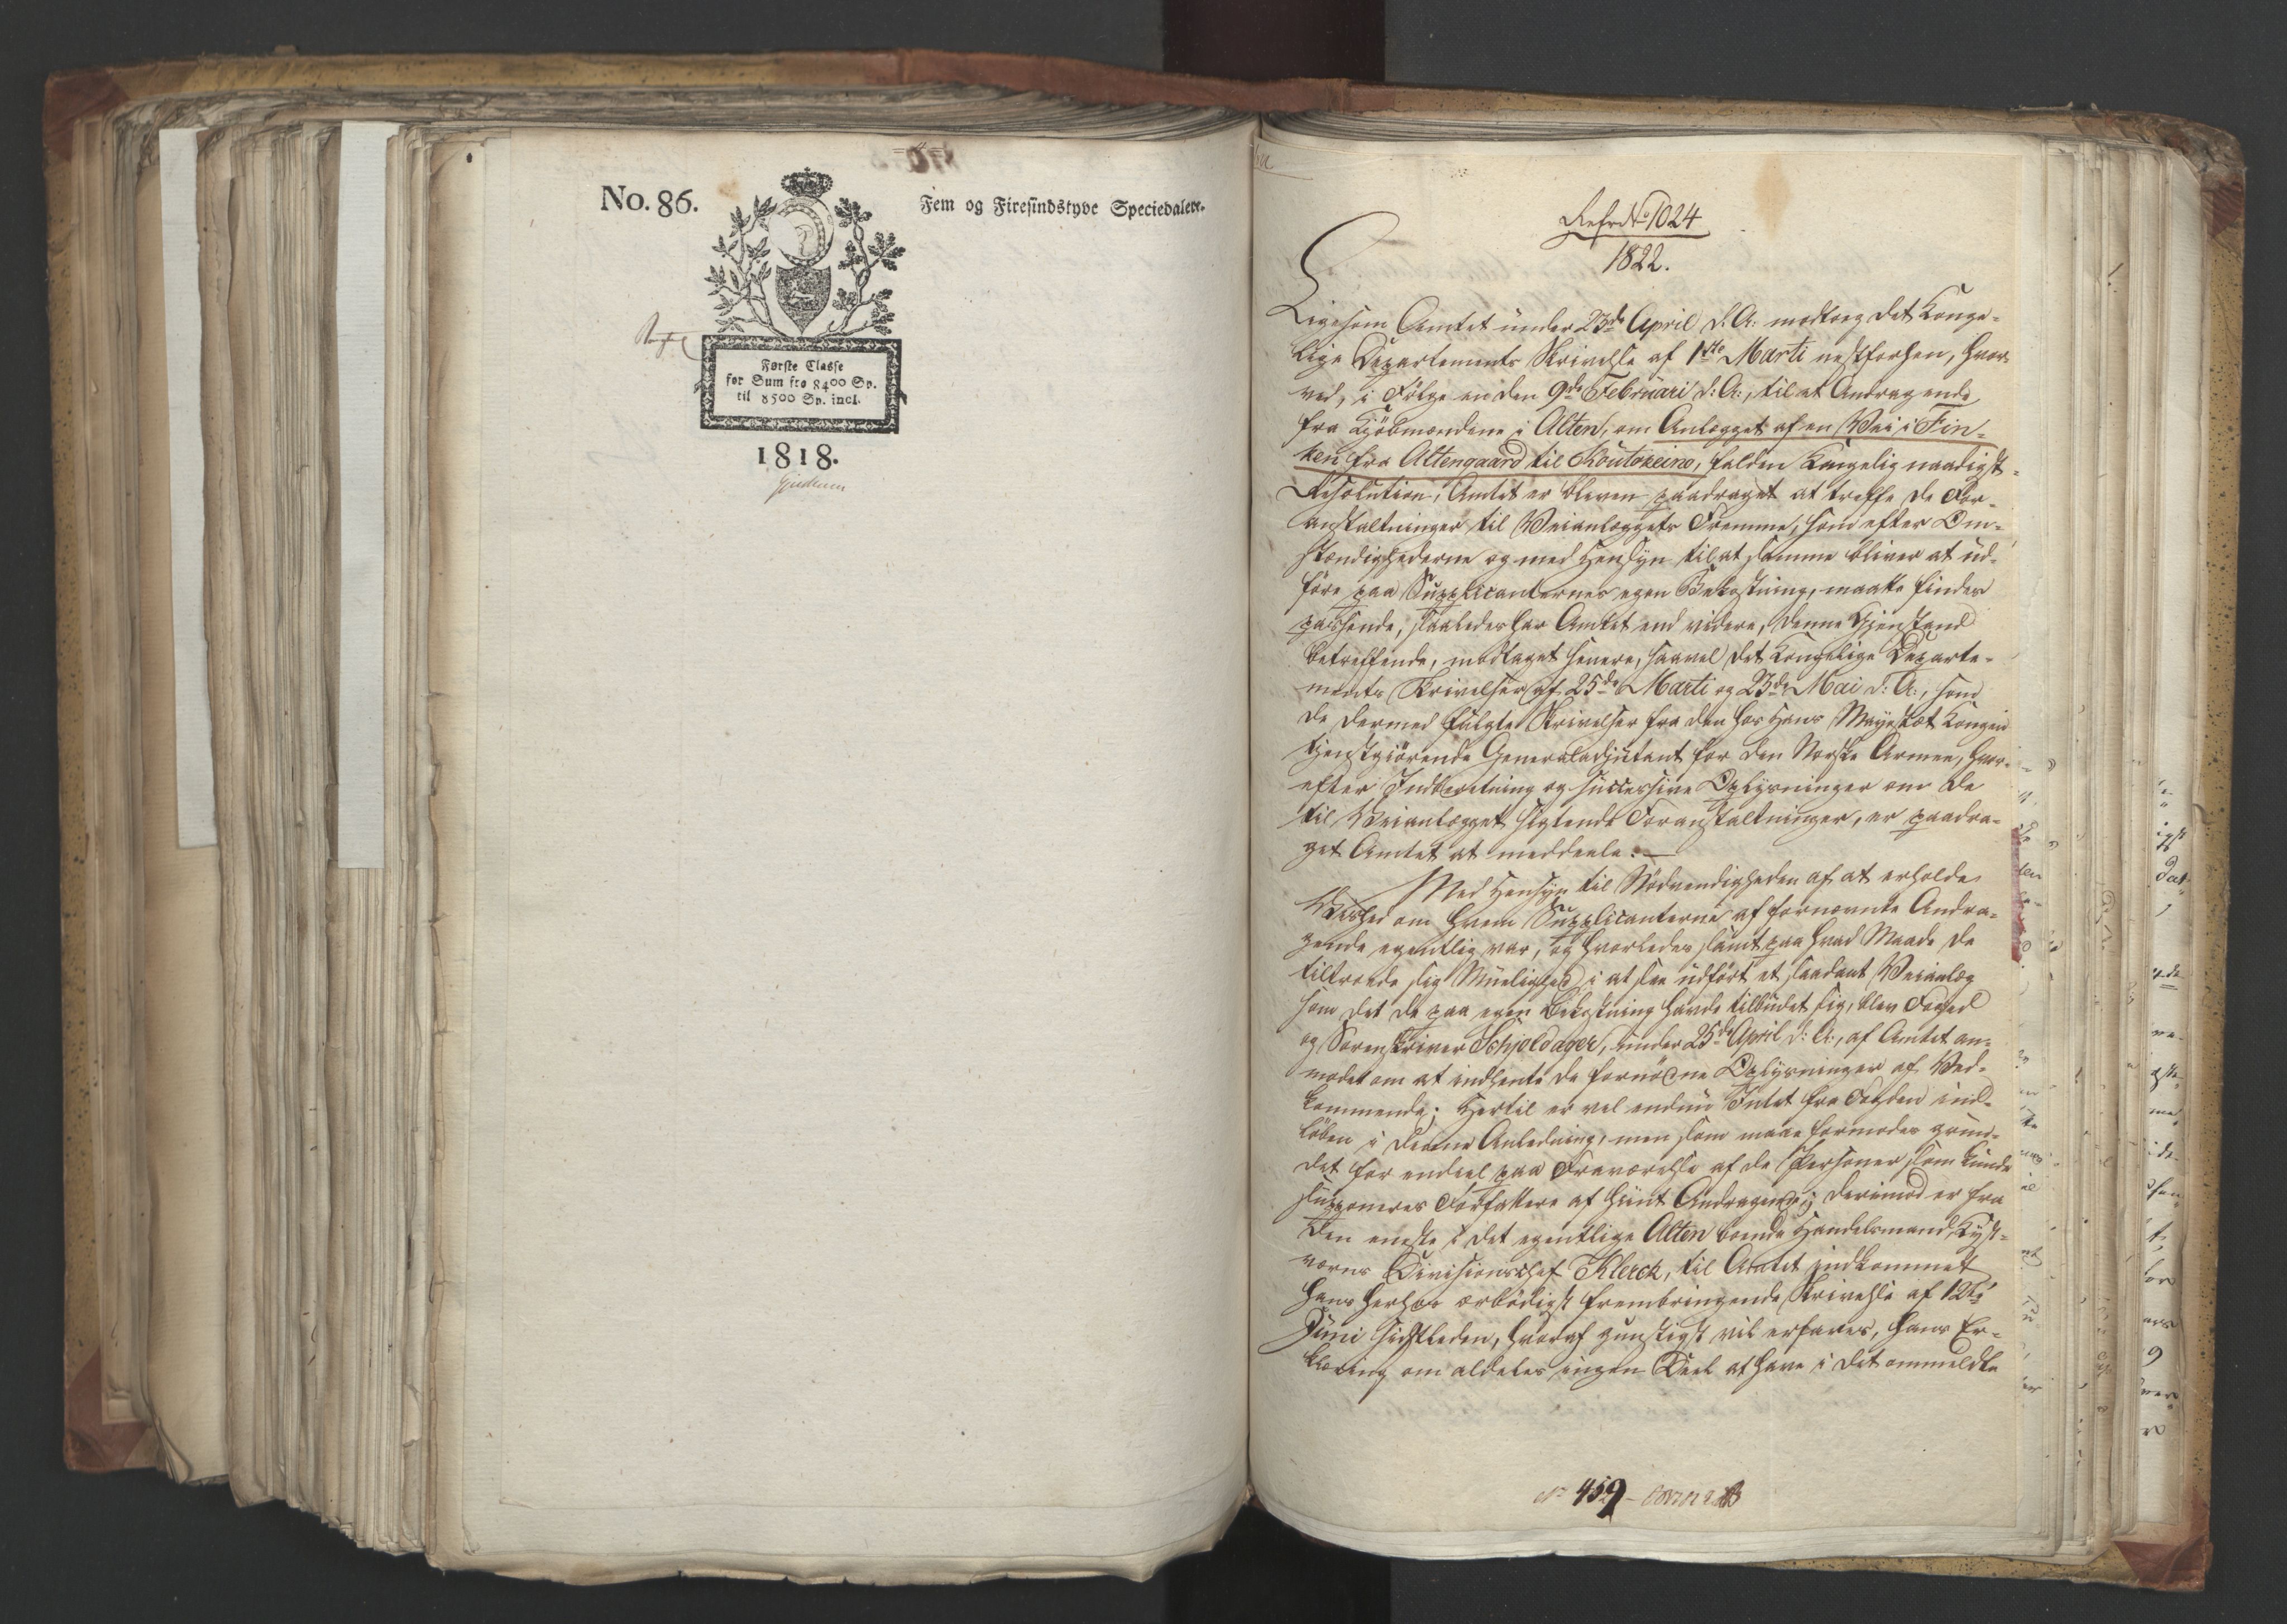 No. 86.
Fem og Firesindstyve Speciedaler.
Første Classe
for Sum fra 8400 Sp.
til 8500 Sp. incl.
1818.
Refr. No 1024
1822.
Ligesom Amtet under 23de April d: A: modtog det Konge-
lige Departements Skrivelse af 1ste Marti nestforhen, hvor-
ved, i Følge en den 9de Februari d: A:, til et Andragende
fra Kjöbmændene i Alten, om Anlægget af en Vei i Fin-
ken fra Altengaard til Koutokeino, falden Kongelig naadigst
Resolution, Amtet er bleven paadraget at treffe de For-
anstaltninger til Veianlæggets Fremme, som efter Om-
stændighederne og med Hensyn til at samme bliver at ud-
före paa Supplicanternes egen Bekostning, maatte findes
passende, saaledes har Amtet end videre, denne Gjenstand
betreffende, modtaget senere, saavel det Kongelige Departe-
ments Skrivelser af 25de Marti og 23de Mai d: A:, som
de dermed fulgte Skrivelser fra den hos Hans Mayestæt Kongen
tjenstgiörende Generaladjutant for den Norske Armee, hvor-
efter Indberetning og successive Oplysninger om de
til Veianlægget sigtende Foranstaltninger, er paadra-
get Amtet at meddeele. —
Med Hensyn til Nödvendigheden af at erholde
Vished om hvem Supplicanterne af fornævnte Andra-
gende egentlig var, og hvorledes samt paa hvad Maade de
tiltroede sig Muelighed i at see udfört et saadant Veianlæg
som det de paa egen Bekostning havde tilbudet sig, blev Foged
og Sorenskriver Schjeldager, under 25de April d: A:, af Amtet an-
modet om at indhente de fornödne Oplysninger af Ved-
kommende; Hertil er vel endnu Intet fra Fogden ind-
löben i denne Anledning, men som maae formodes grun-
det for endeel paa Fraværelse af de Personer, som kunde
supponeres Forfattere af hiint Andragende; derimod er fra
den eneste i det egentlige Alten boende Handelsmand, Kyst-
værns Divisionschef Klerck, til Amtet indkommet
hans herhos ærbödigst frembringende Skrivelse af 12te
Juni sidstleden, hvoraf gunstigst vil erfares, hans Er-
klæring om aldeles ingen Deel at have i det ommeldte
No 459